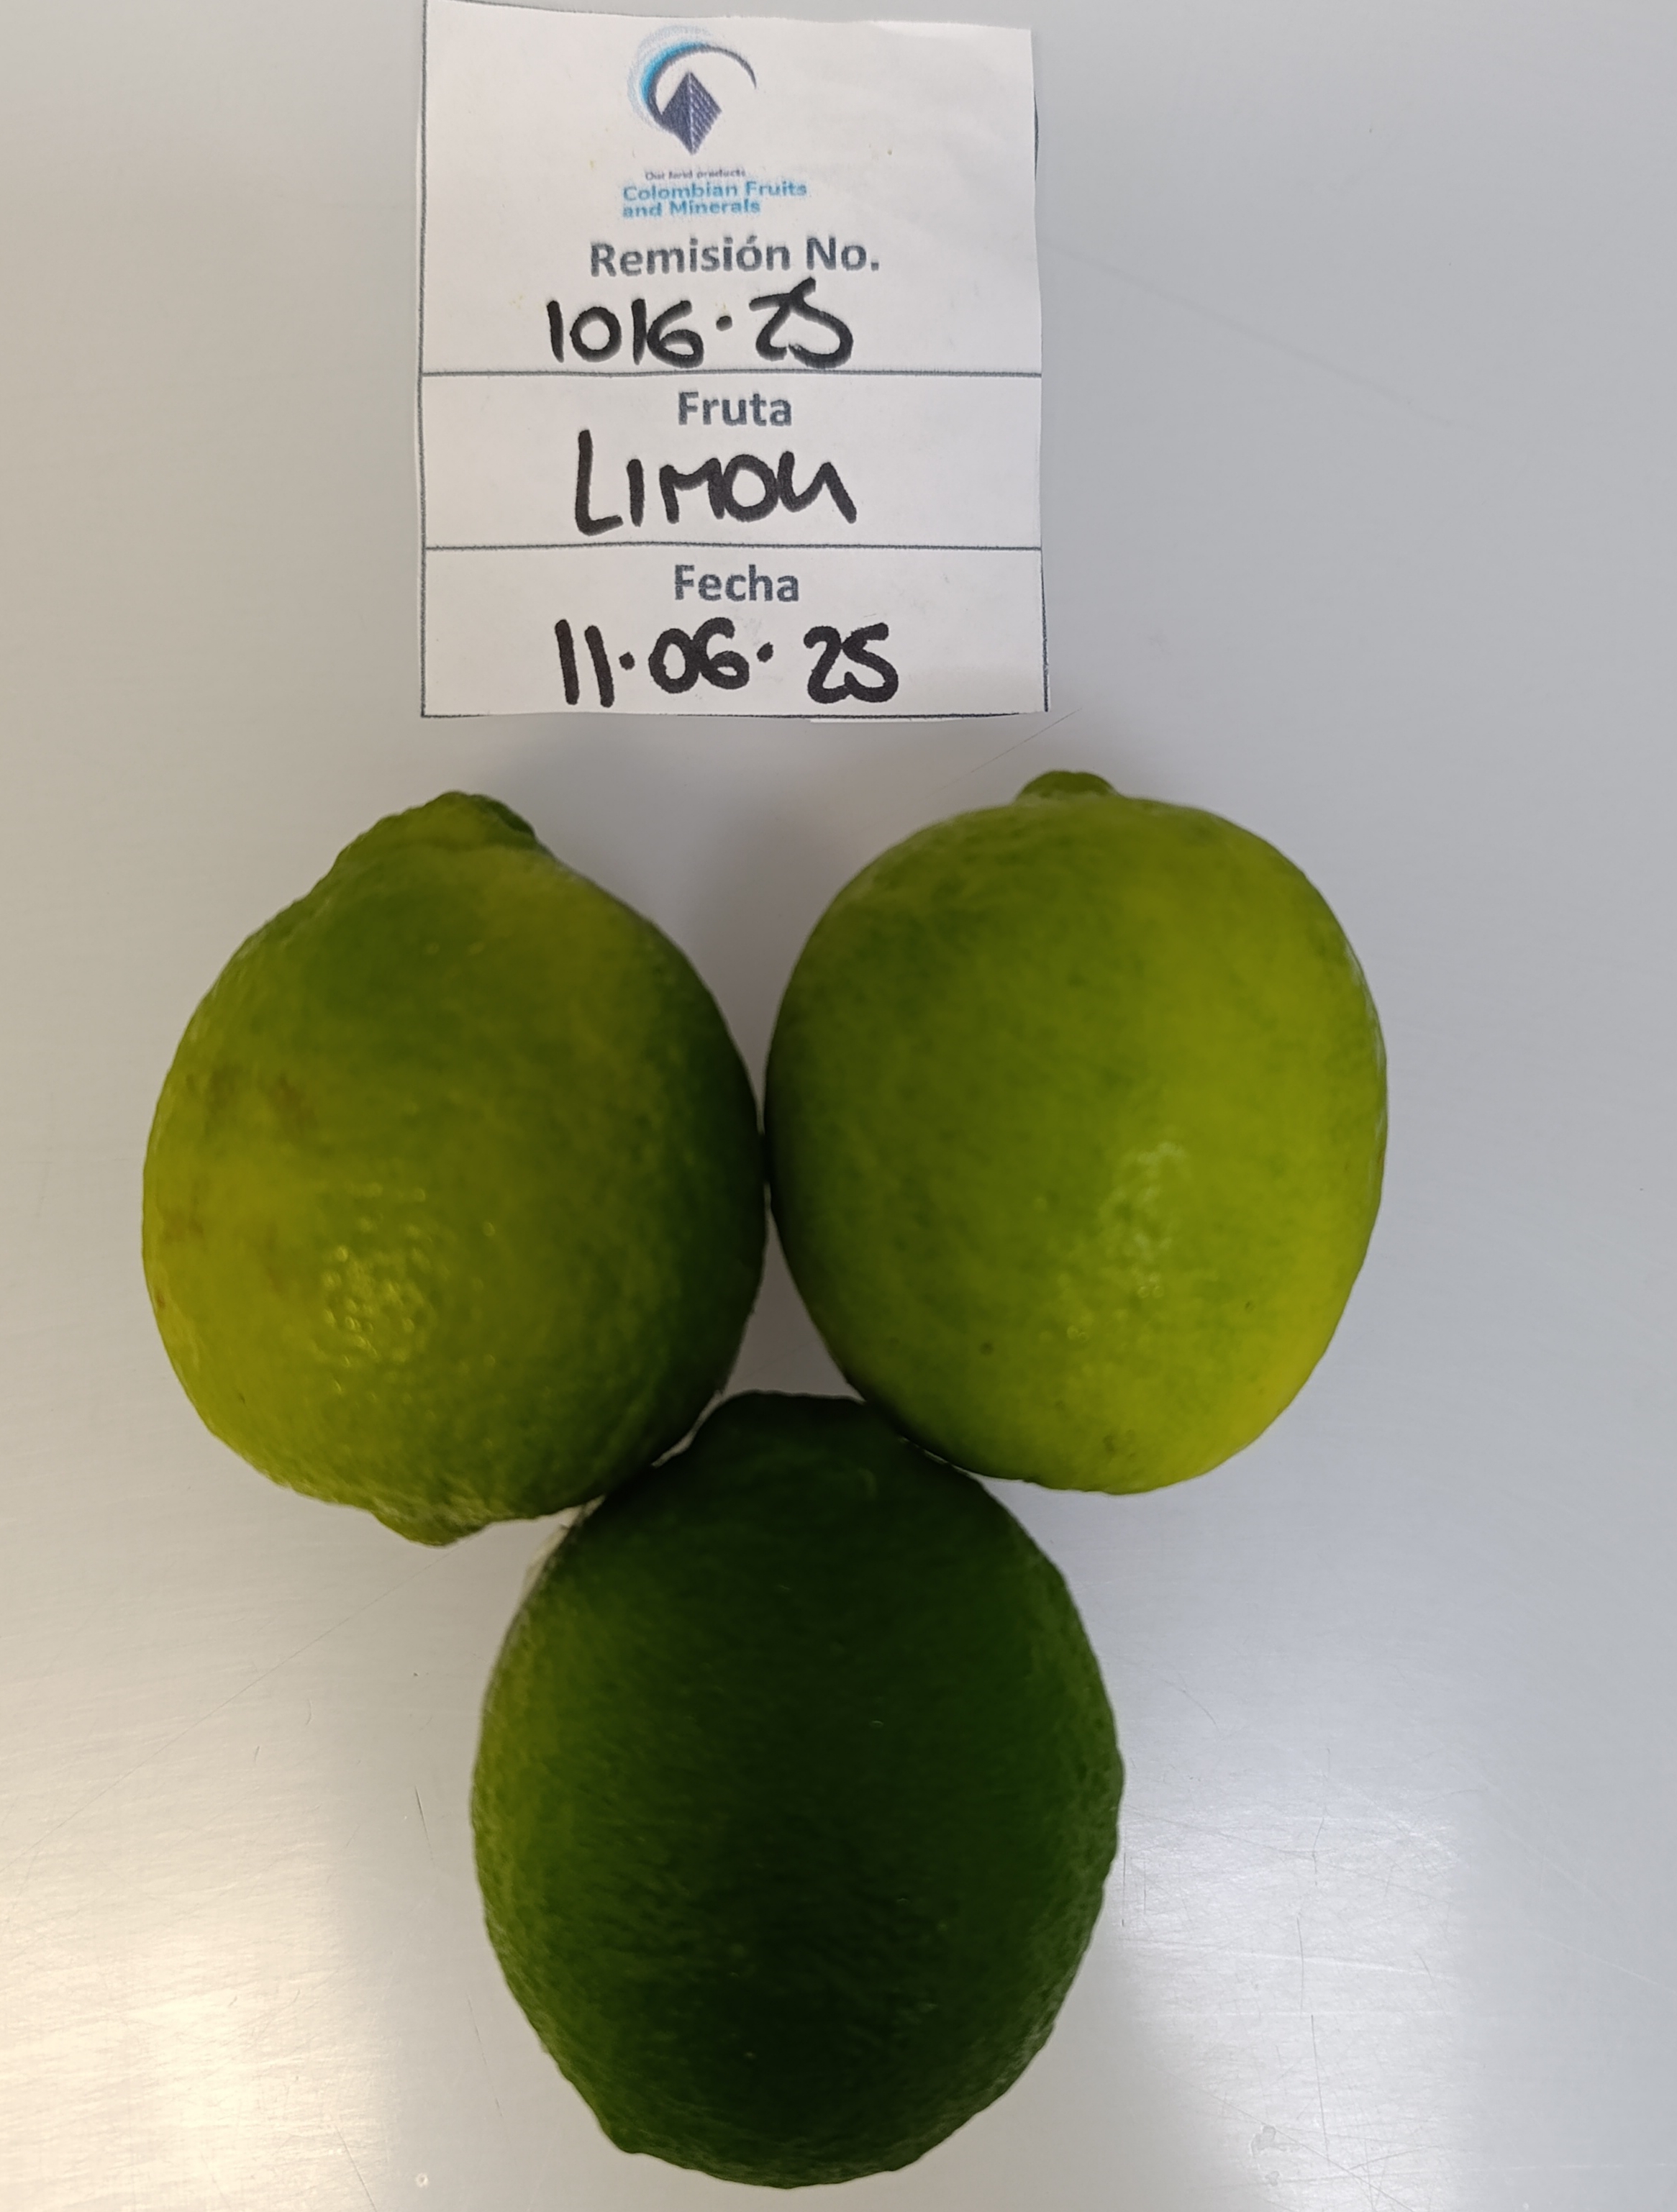 Our land products
Colombian Fruits
and Minerals
Remisión No.
1016.25
Fruta
LIMON
Fecha
11.06.25